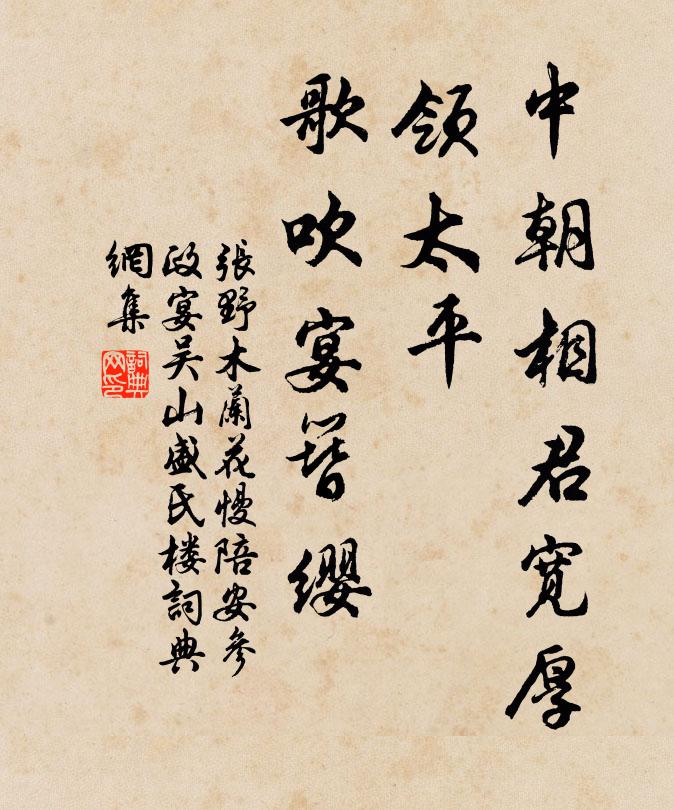 中朝相君寬厚
領太平
歌吹宴簪纓
張野木蘭花慢陪安參
政宴吴山盛氏楼詞典
網集
詞典网印